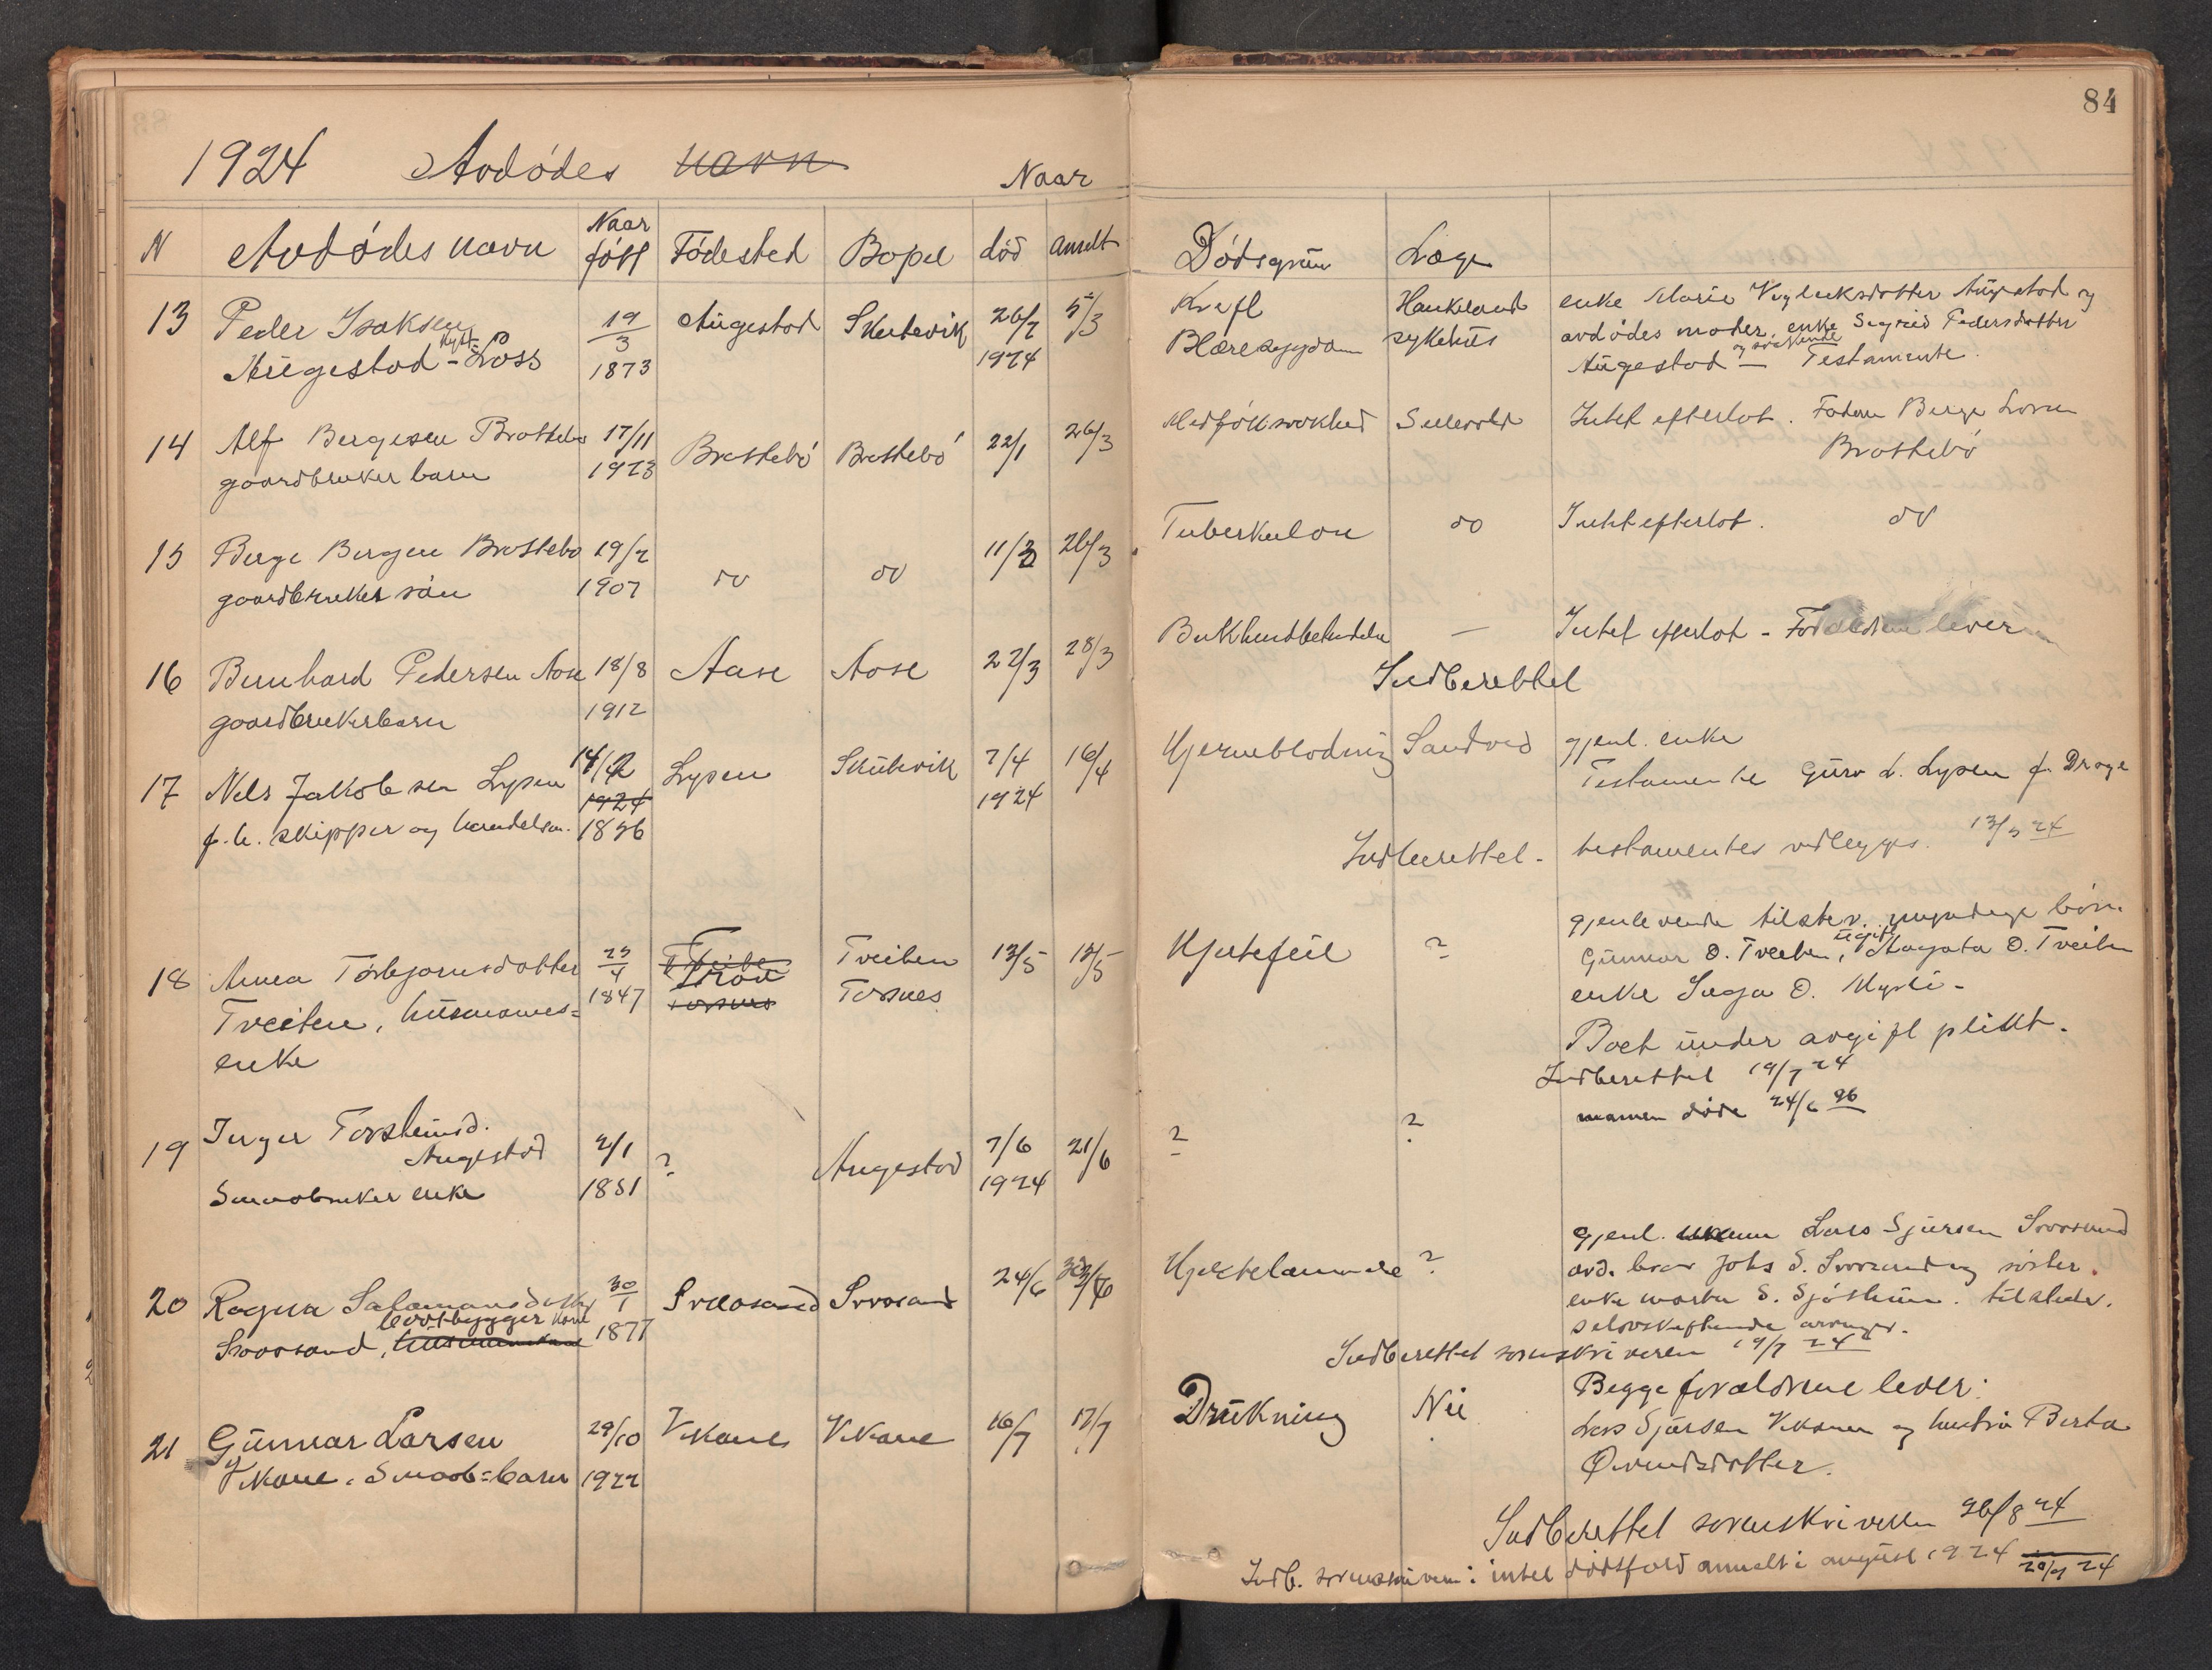 84
1924 Avdødes navn Naar
N Avdødes navn Naar født Fødested Bopel død anmelt Dødsgrun Læge
13 Peder Isaksen 19/3 Augestad Skutevik 26/2 5/3 Kreft Haukeland enke Marie Vigleiksdotter Augestad og
Augestad - Loss 1873 1924 Blæresygdom sykehus avdødes moder, enke Sigrid Pedersdotter
og søskende
Augestad — Testamente.
14 Alf Bergesen Brattebø 17/11 Brattebø Brattebø 22/1 26/3 Medfødt svakhed Sellevold Intet efterlot. Faderen Berge Larsen
gaardbruker barn 1923 Brattebø
15 Berge Bergesen Brattebø 19/2 do do 11/3 26/3 Tuberkulose do Intet efterlot. do
gaardbruker søn 1907
16 Bernhard Pedersen Aase 18/8 Aase Aase 22/3 28/3 Bukhindebetendelse — Intet efterlot - Forældrene lever
gaardbrukerbarn 1912 Indberettet
17 Nels Jakobsen Lysen 14/12 Lysen Skutevik 7/4 16/4 Hjerneblødning Sandved gjenl. enke
1924 1924 Testamente Guro L. Lysen f. Drage
f.h. skipper og handelsm. 1836
Indberettet - testamentet vedlegges. 13/5 24
18 Anna Torbjørnsdotter 23/4 Tveiten Tveiten 13/5 15/5 Hjertefeil ? gjenlevende tilstev. myndige børn
Tveiten, husmannes= 1847 Torsnes Torsnes Gunnar O. Tveiten, ugift Magata O. Tveiten
enke enke Inga O. Myrli -
Boet under avgift plikt.
Indberettet 19/7 24
19 Inger Torsteinsd. mannen døde 24/6 96
Augestad 2/1 ? Augestad 7/6 21/6 ? ?
Smaabruker enke 1851 1924
20 Ragna Salamonsdotter 30/1 Svaasand Svaasand 24/6 Hjertelammelse ? gjenl. mann Lars Sjursen Svaasand
bootbygger kone
Svaasand, husmannskone 1877 avd. bror Johs S. Svaasand og søster.
enke Marta S. Sjøtheim. tilstede.
selvskiftende arvinger.
Indberettet sorenskriveren 19/7 24
21 Gunnar Larsen 29/10 Vikane Vikane 16/7 17/7 Drukning Nei Begge forældrene lever:
Vikane. Smaab=barn 1922 Lars Sjursen Vikanes og hustru Berta
Øivendsdotter.
Indberettet sorenskriveren 26/8 24
Indb. sorenskriveren: intet dødsfald anmelt i august 1924 20/9 24